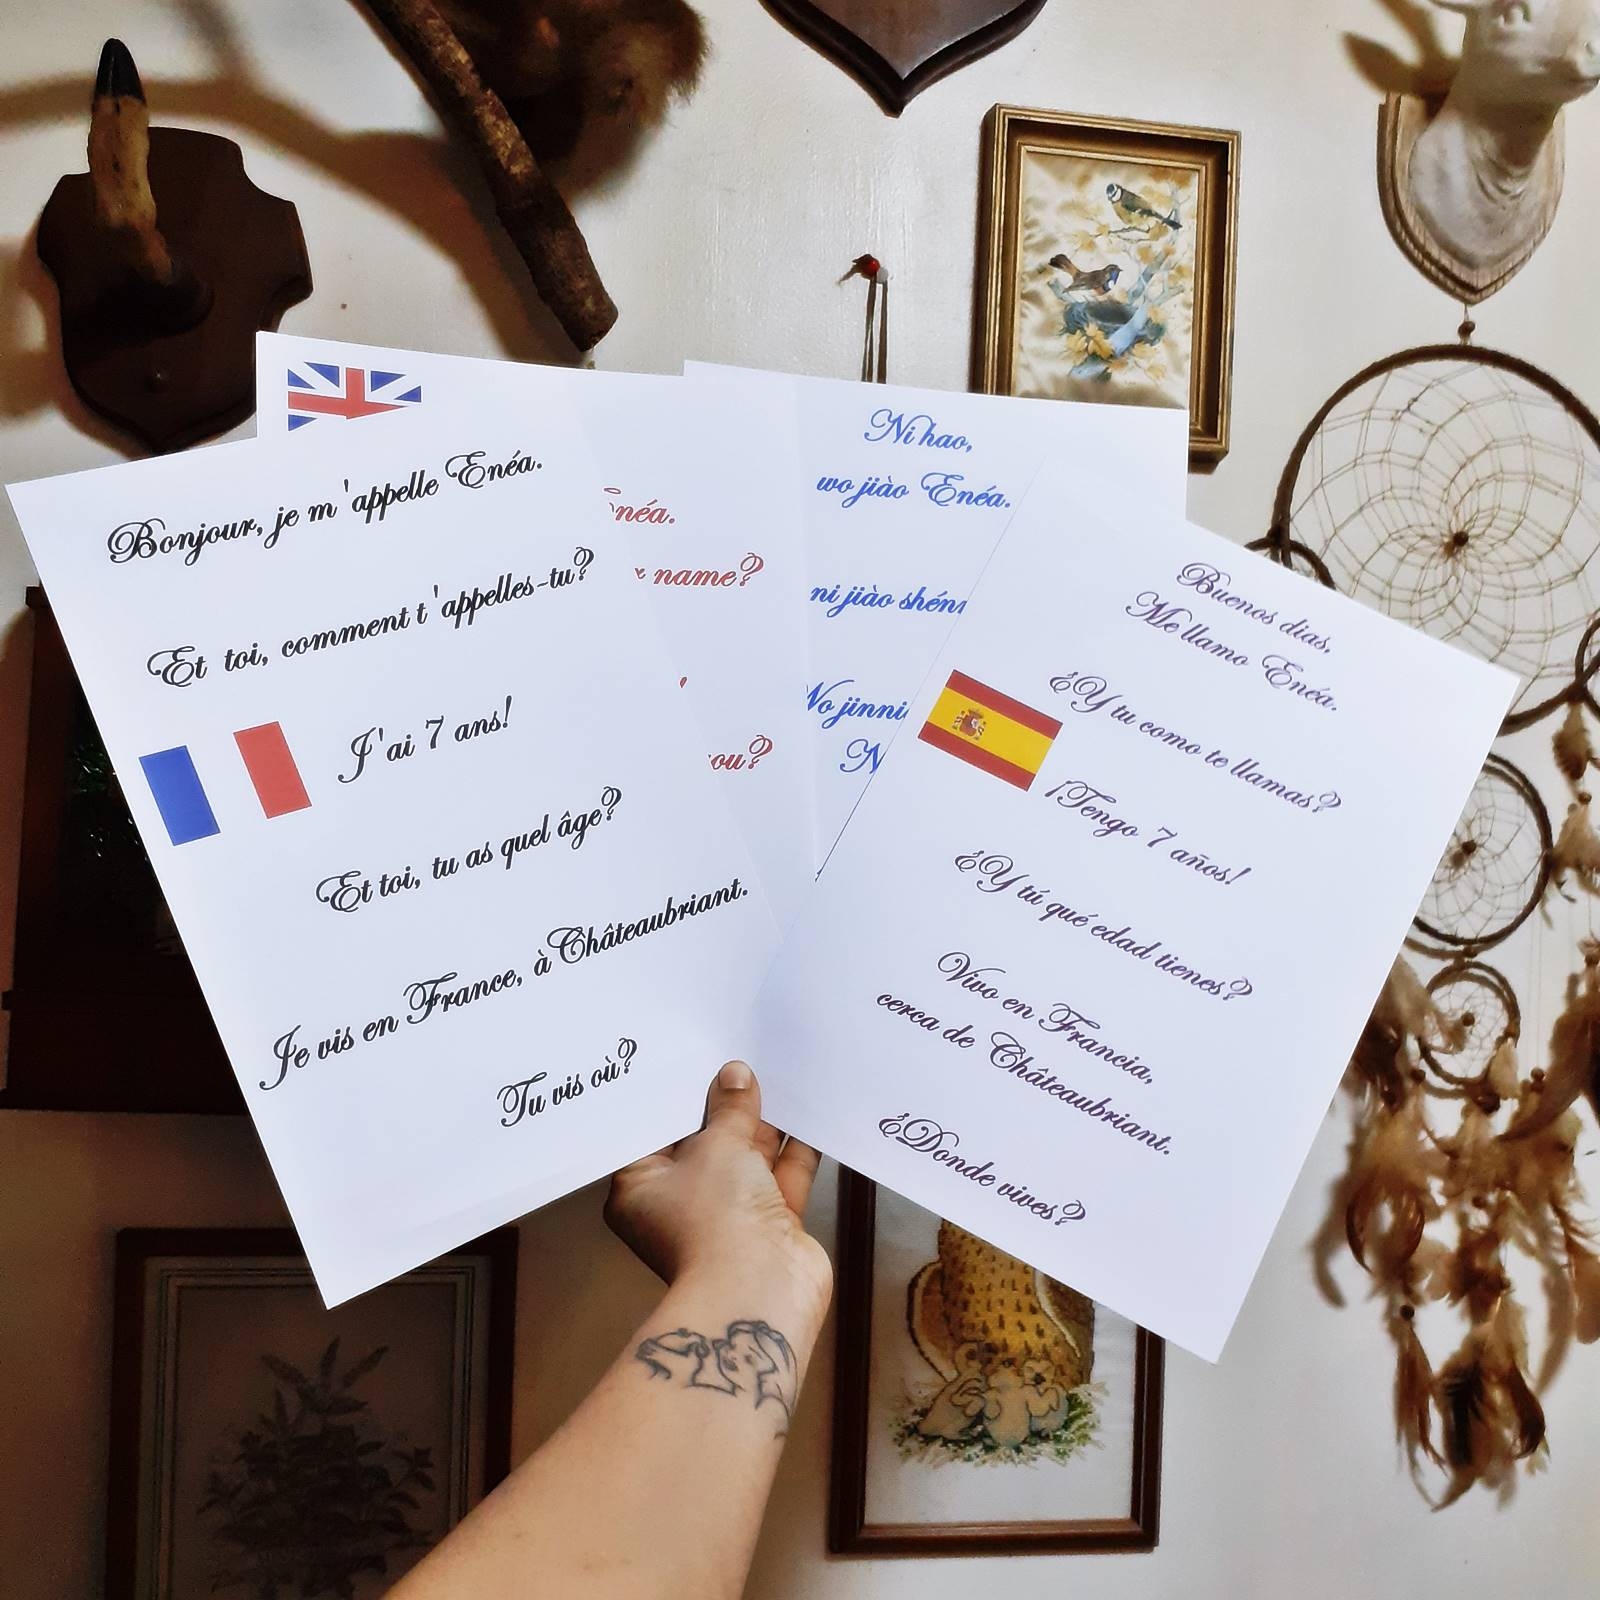 Bonjour, je m'appelle Enéa.
Et toi, comment t'appelles-tu?
J'ai 7 ans!
Et toi, tu as quel âge?
Je vis en France, à Châteaubriant.
Tu vis où?
name?
Ni hao,
wo jiào Enéa.
ni jiào
Buenos dias,
Me llamo Enéa.
¿Y tu como te llamas?
¡Tengo 7 años!
¿Y tú qué edad tienes?
Vivo en Francia,
cerca de Châteaubriant.
¿Donde vives?